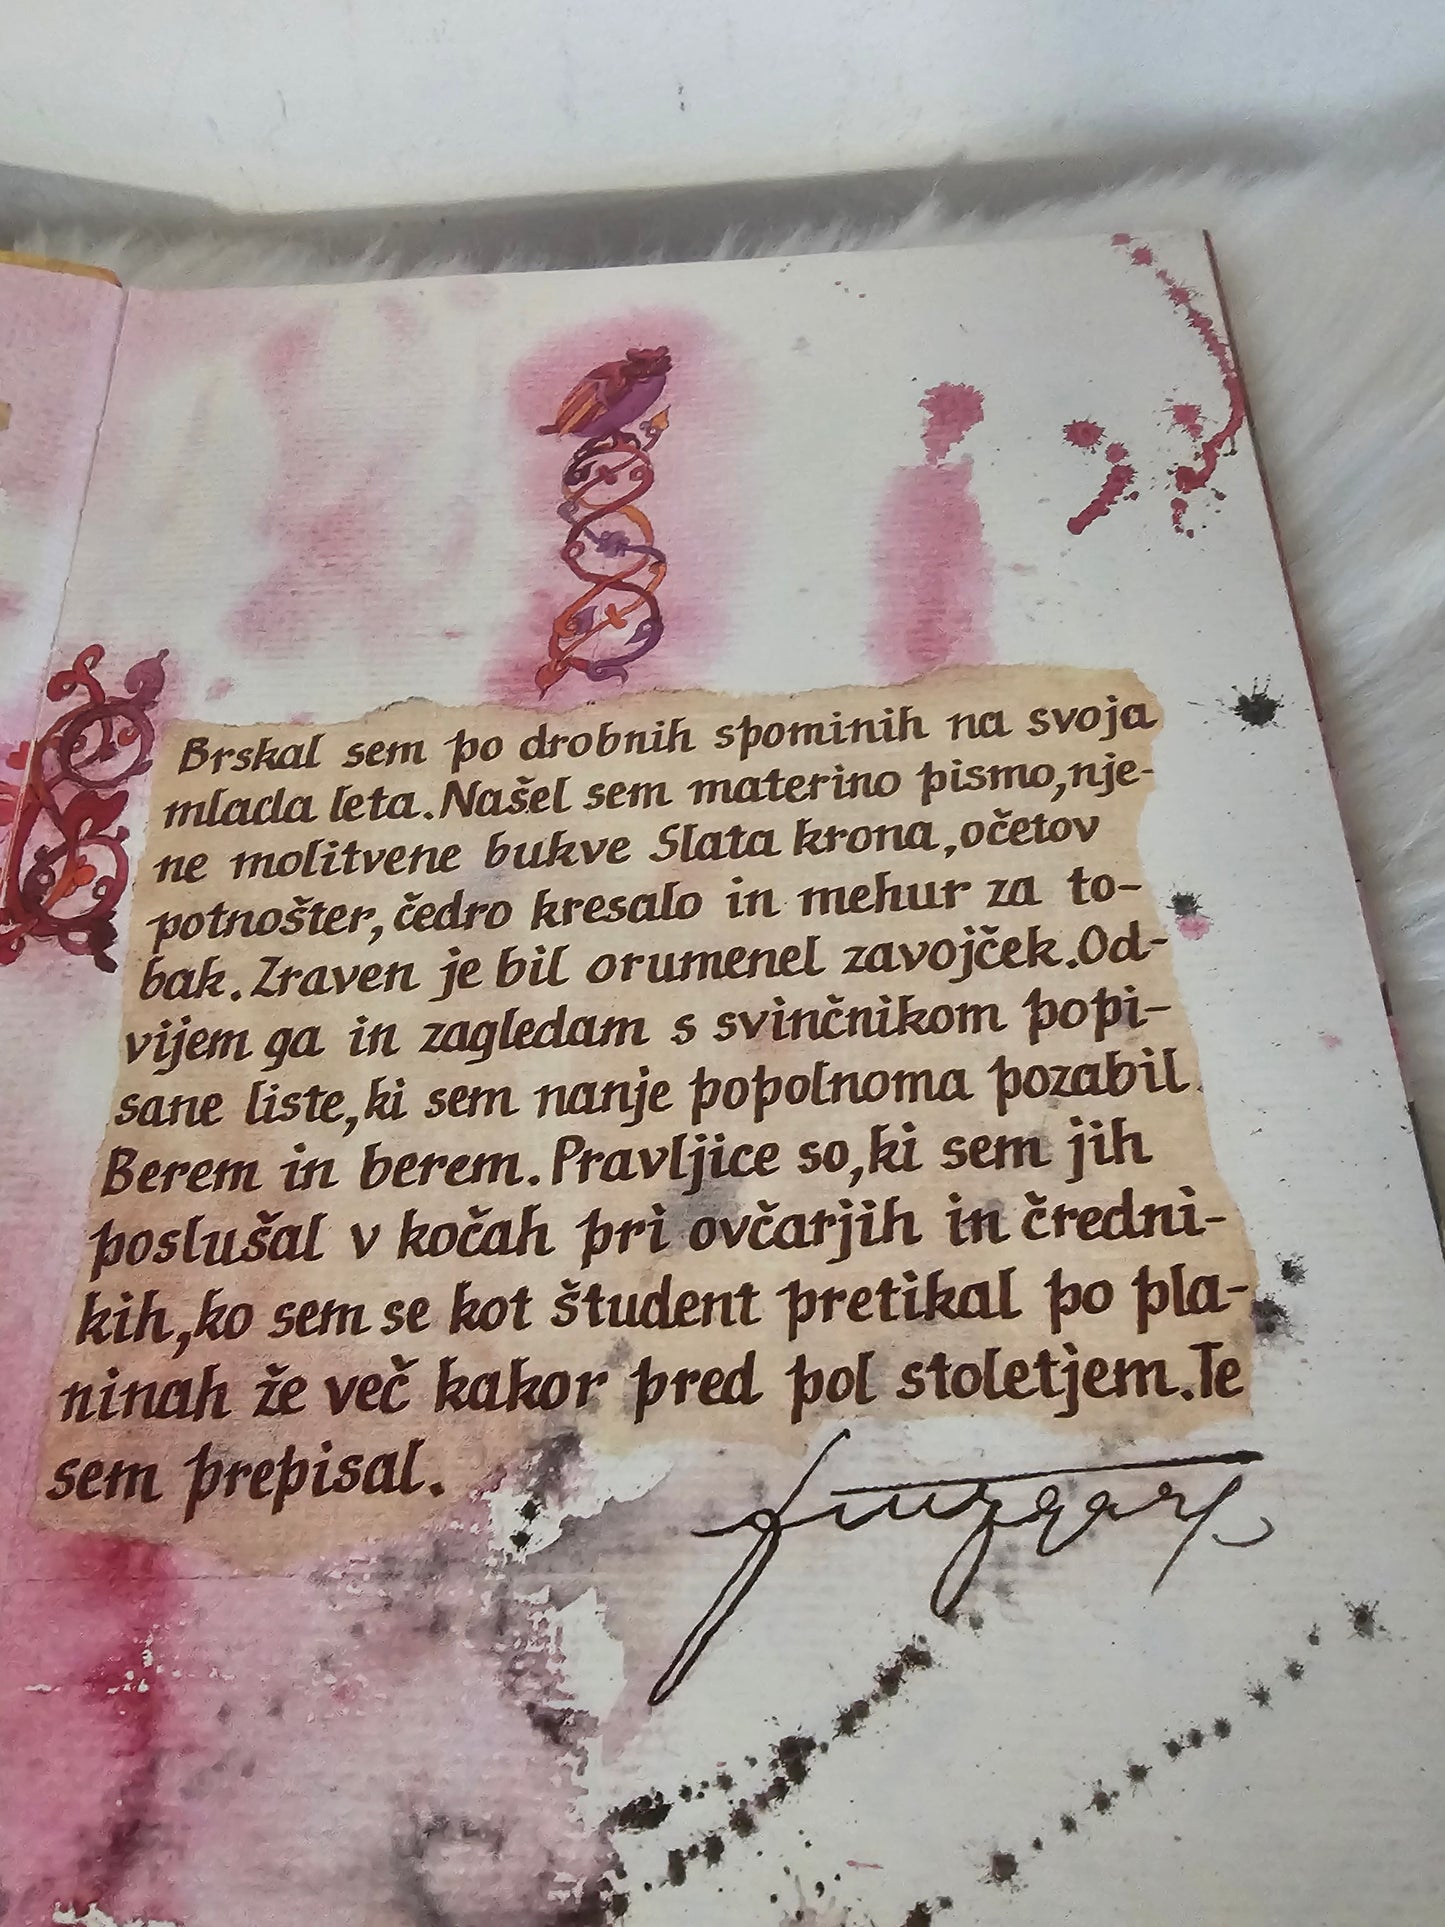 Brskal sem po drobnih spominih na svoja
mlada leta. Našel sem materino pismo, nje-
ne molitvene bukve Slata krona, očetov
potnošter, čedro kresalo in mehur za to-
bak. Zraven je bil orumenel zavojček. Od-
vijem ga in zagledam s svinčnikom popi-
sane liste, ki sem nanje popolnoma pozabil.
Berem in berem. Pravljice so, ki sem jih
poslušal v kočah pri ovčarjih in čredni-
kih, ko sem se kot študent pretikal po pla-
ninah že več kakor pred pol stoletjem. Te
sem prepisal.